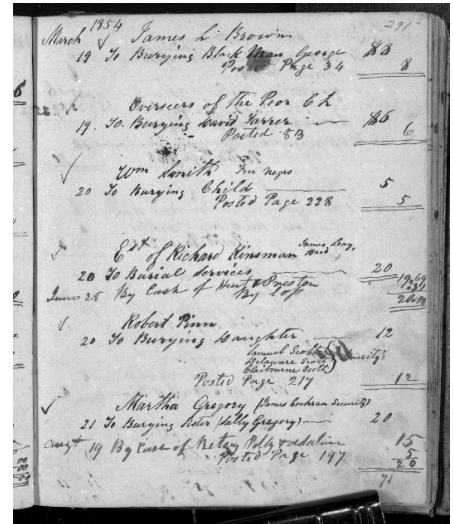 291
March 1854 James L. Brown
19 To Burying Black Man George 8
Posted Page 34 8
Overseers of the Poor Ch
19. To Burying David Farrer 6
Posted 83 6
Wm Smith Free Negro
20 To Burying Child 5
Posted Page 228 5
Est of Richard Kinsman
20 To Burial Services 20
June 25 By Cash of Preston
By
Robert Pinn
20 To Burying Daughter 12
Samuel Scott
Delaware Scott
Claibourne Scott
Posted Page 217 12
Martha Gregory (James Cochran Security)
21 To Burying Sister (Sally Gregory) 20
Augt 19 By Cash of Betsy Polly & Adaline 15
5
Posted Page 197 20